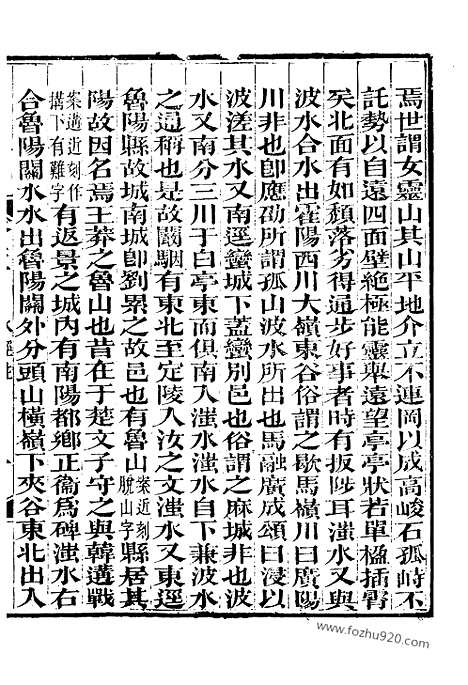 焉世謂女靈山其山平地介立不連岡以成高峻石孤峙不
託勢以自遠四面壁絕極能靈舉遠望亭亭狀若單楹插霄
矣北面有如頹落劣得通步好事者時有扳陟耳滍水又與
波水合水出霍陽西川大嶺東谷俗謂之歇馬嶺川曰廣陽
川非也卽應劭所謂孤山波水所出也馬融廣成頌曰浸以
波溠其水又南逕蠻城下蓋蠻別邑也俗謂之麻城非也波
水又南分三川于白亭東而俱南入滍水滍水自下兼波水
之通稱也是故闞駰有東北至定陵入汝之文滍水又東逕
魯陽縣故城南城卽劉累之故邑也有魯山案近刻脫山字縣居其
陽故因名焉王莽之魯山也昔在于楚文子守之與韓遘戰
案遘近刻作搆下有難字有返景之城內有南陽都鄉正衞爲碑滍水右
合魯陽關水水出魯陽關外分頭山橫嶺下夾谷東北出入
www.fozhu920.com